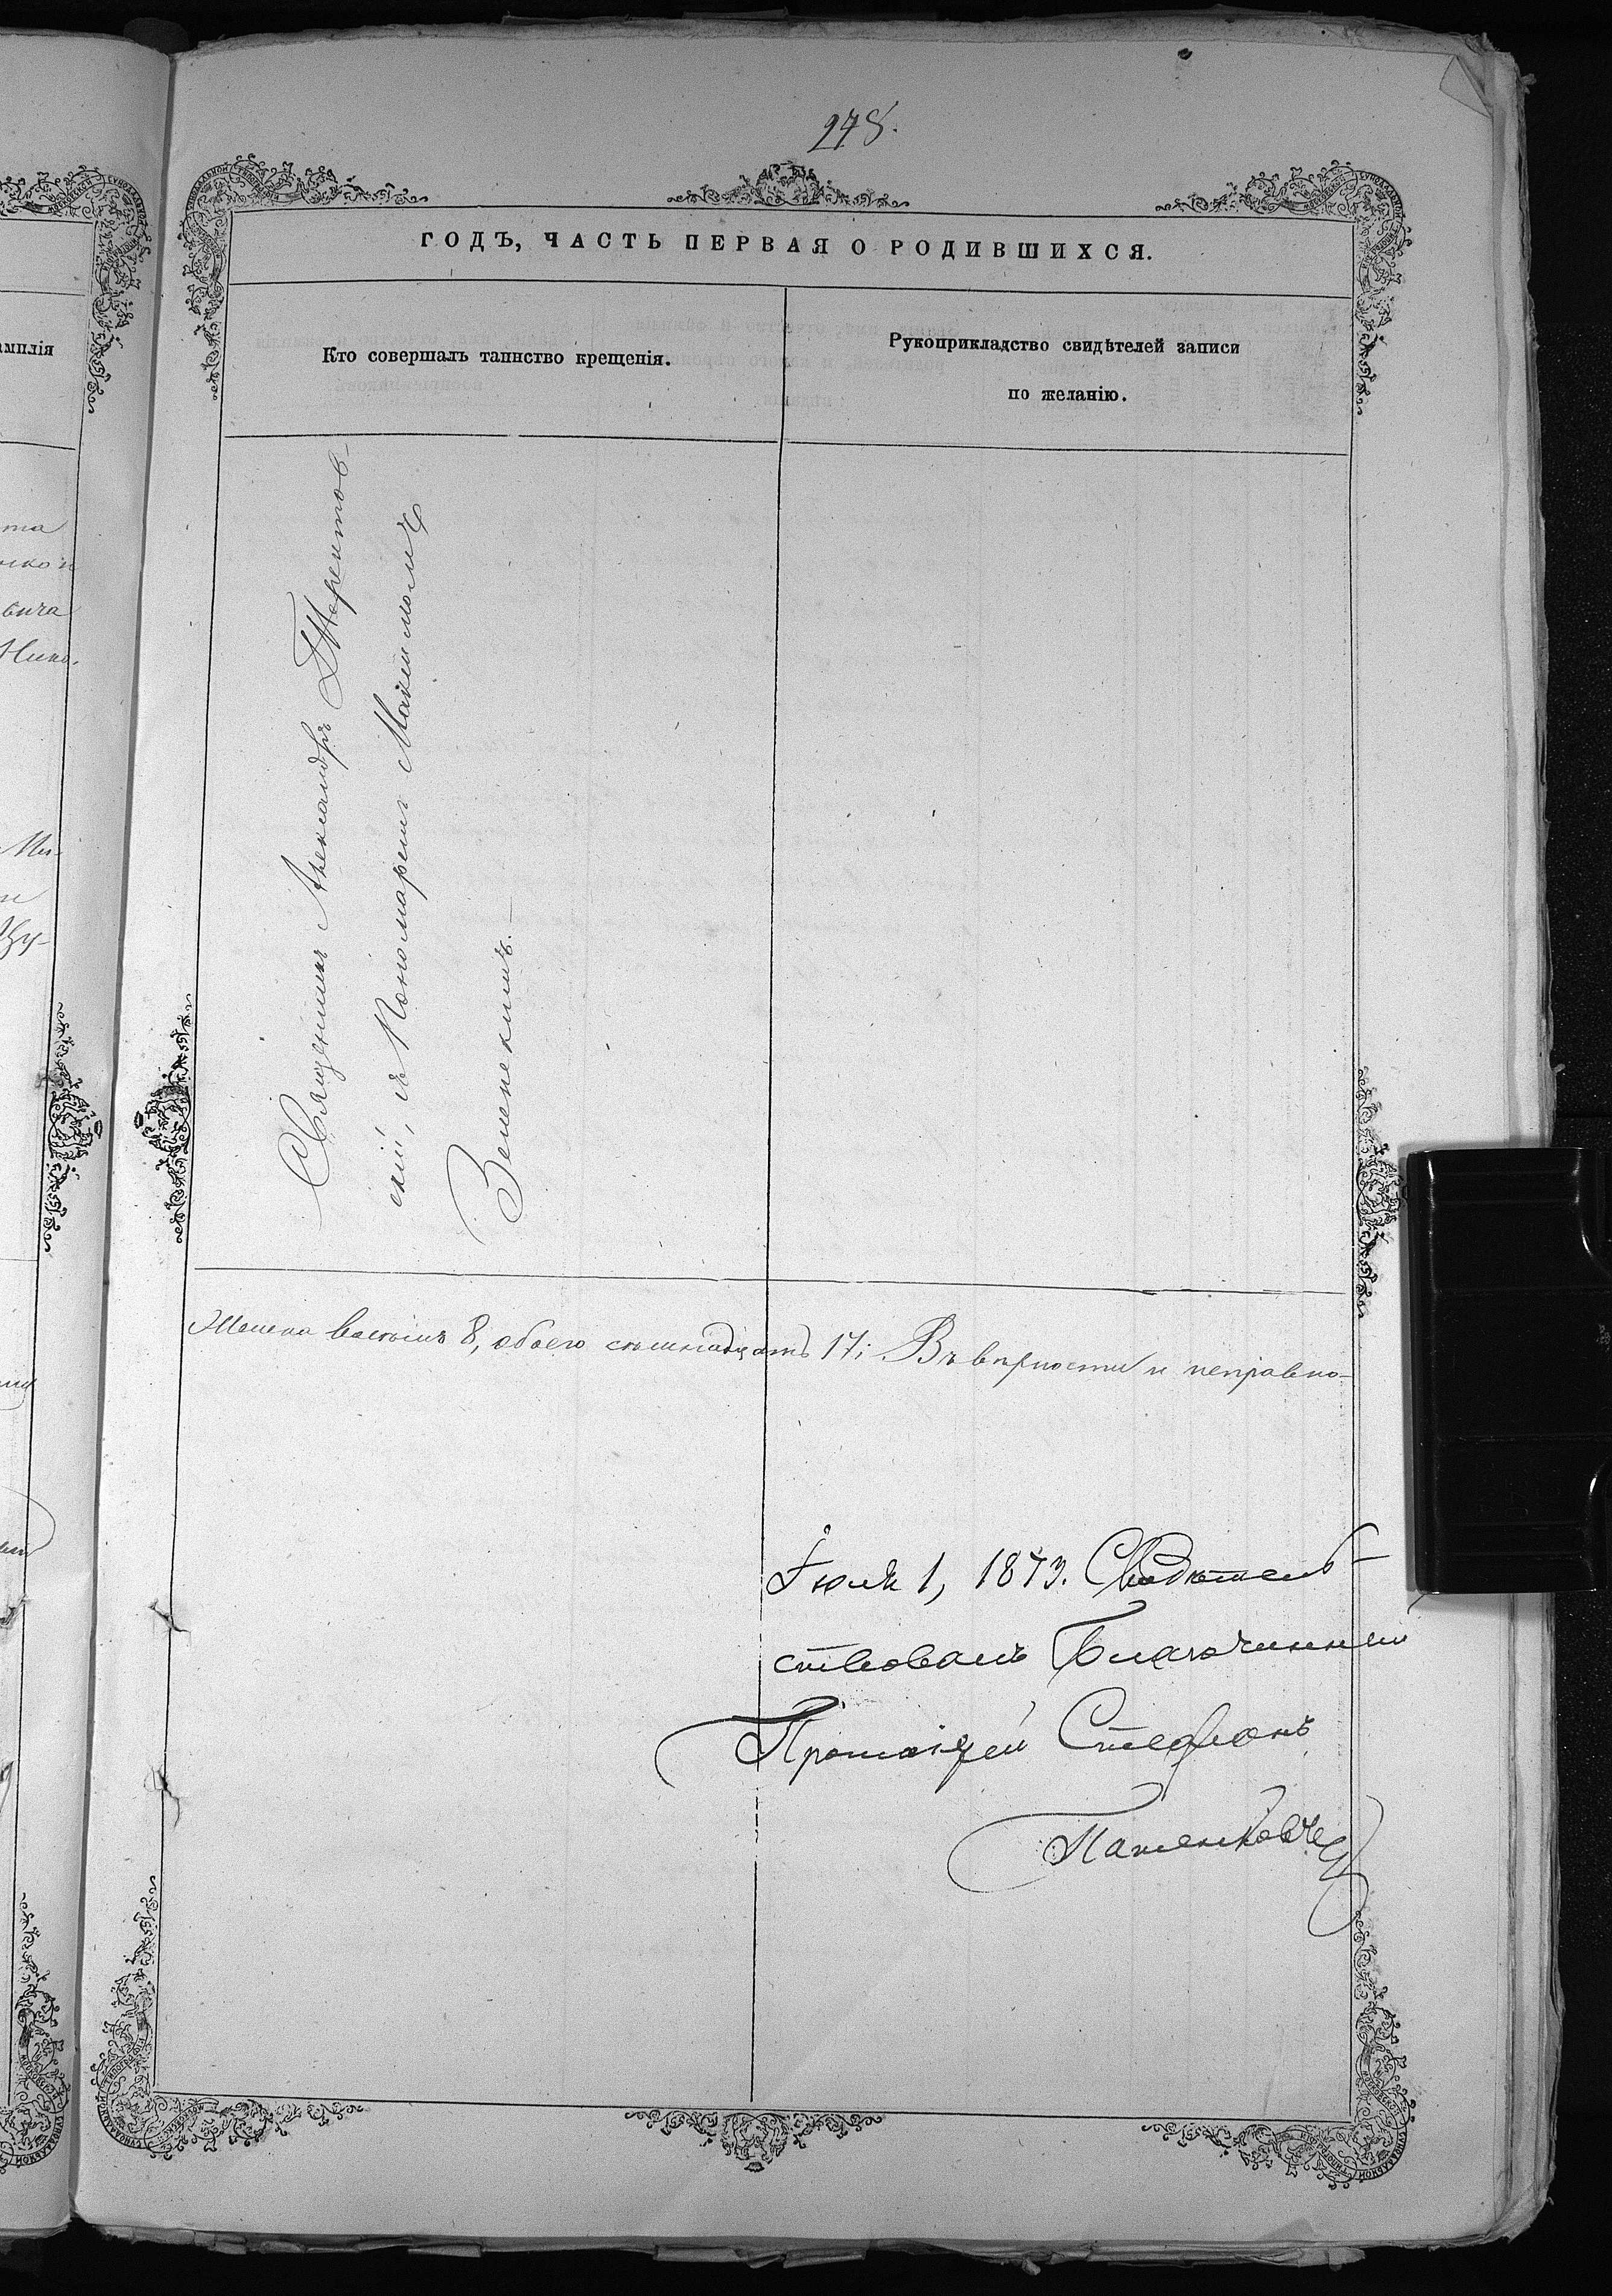 278.
ГОДЪ, ЧАСТЬ ПЕРВАЯ О РОДИВШИХСЯ.
амилія
Кто совершалъ таинство крещенія.
Рукоприкладство свидѣтелей записи
по желанію.
та
вича
Нико-
Священникъ Александръ
скій, съ Пономаремъ Максимомъ
Зеленскимъ.
Женска восьмь 8, обоего семнадцать 17; Въ вѣрности и исправно-
Іюля 1, 1873. Свидѣтель-
ствовалъ Благочинный
Протоіерей Стефанъ